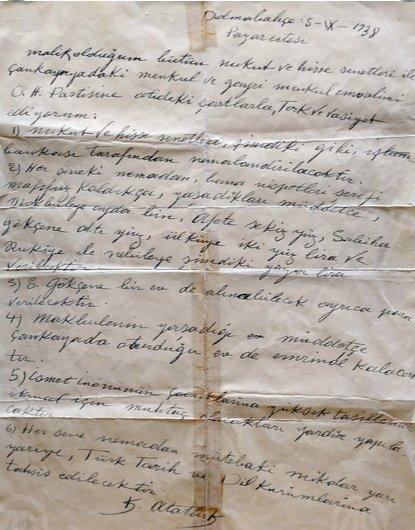 Dolmabahçe: 5-IX-1938
Pazartesi
malik olduğum bütün nukut ve hisse senetleri ile
Çankayadaki menkul ve gayri menkul emvalimi
C. H. Partisine atideki şartlarla, Terk ve vasiyet
ediyorum:
1) nukut ve hisse senetleri, şimdiki gibi, iş
bankası tarafından nemalandırılacaktır.
2) Her seneki nemadan, bana nispetleri şerefi
mahfuz kaldıkça, yaşadıkları müddetçe,
Makbuleye ayda bin, Afete sekiz yüz, Sabiha
gökçene altı yüz, ülküye iki yüz lira ve
Rukiye ile nebileye şimdiki yüzer lira
verilecektir.
3) S. Gökçene bir ev de alınabilecek ayrıca para
verilecektir.
4) Makbulenin yaşadığı müddetçe
Çankayada oturduğu ev de emrinde kalacak
tır.
5) ismet inönünün çocuklarına yüksek tahsillerini
ikmal için muhtaç olacakları yardım yapıla
caktır.
6) Her sene nemadan mütebaki miktar yarı
yarıya, Türk Tarih ve Dil Kurumlarına
tahsis edilecektir.
K. Atatürk